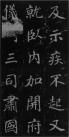 及示疾不起又
就卧内加開府
儀同三司肅國